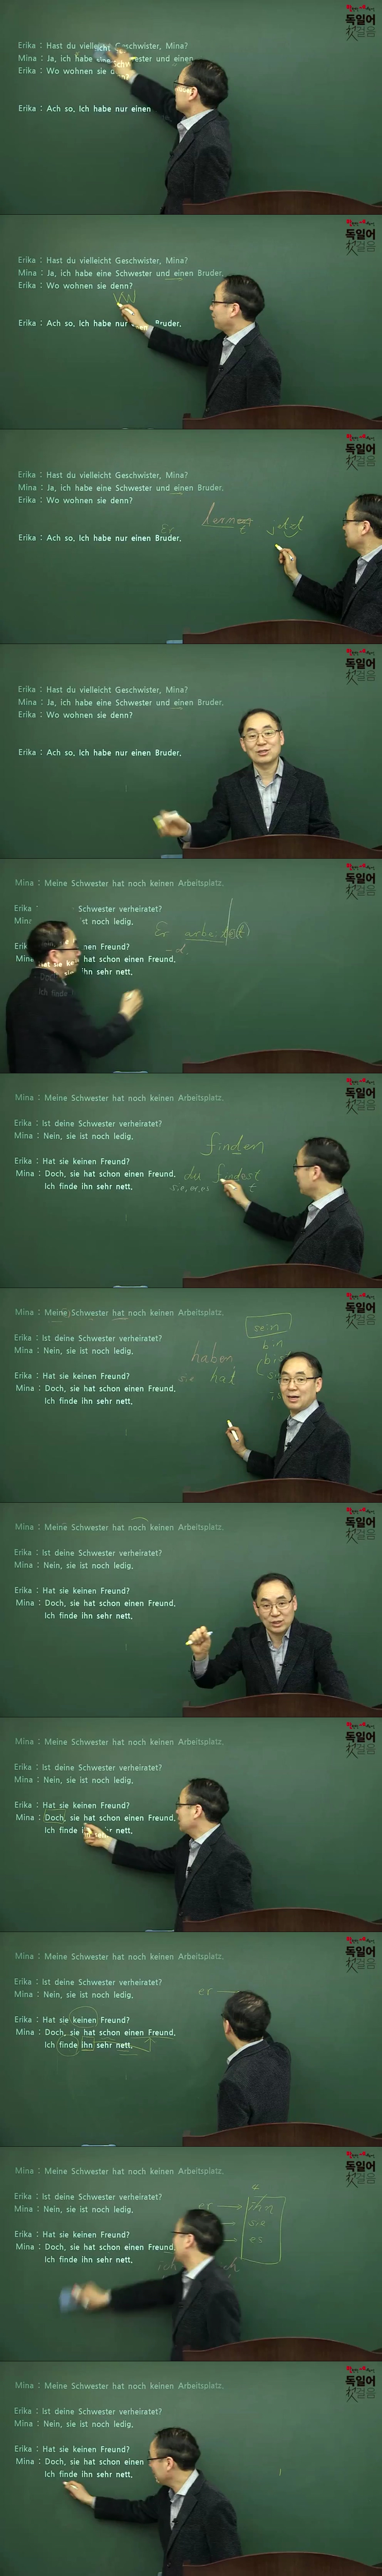 독일어
첫걸음
Erika : Hast du vielleicht Geschwister, Mina?
Mina : Ja, ich habe eine Schwester und einen
Erika : Wo wohnen sie denn?
Erika : Ach so. Ich habe nur einen
독일어
첫걸음
Erika : Hast du vielleicht Geschwister, Mina?
Mina : Ja, ich habe eine Schwester und einen Bruder.
Erika : Wo wohnen sie denn?
Erika : Ach so. Ich habe nur einen Bruder.
독일어
첫걸음
Erika : Hast du vielleicht Geschwister, Mina?
Mina : Ja, ich habe eine Schwester und einen Bruder.
Erika : Wo wohnen sie denn?
Er
Erika : Ach so. Ich habe nur einen Bruder.
독일어
첫걸음
Erika : Hast du vielleicht Geschwister, Mina?
Mina : Ja, ich habe eine Schwester und einen Bruder.
Erika : Wo wohnen sie denn?
Erika : Ach so. Ich habe nur einen Bruder.
독일어
첫걸음
Mina : Meine Schwester hat noch keinen Arbeitsplatz.
Erika : Schwester verheiratet?
Mina ist noch ledig.
Er arbeitet
Erik keinen Freund?
Mina hat schon einen Freund.
-d
Ich finde ihn sehr nett.
독일어
첫걸음
Mina : Meine Schwester hat noch keinen Arbeitsplatz.
Erika : Ist deine Schwester verheiratet?
Mina : Nein, sie ist noch ledig.
finden
Erika : Hat sie keinen Freund?
Mina : Doch, sie hat schon einen Freund.
du findest
Ich finde ihn sehr nett.
sie, er, es t
독일어
첫걸음
Mina : Meine Schwester hat noch keinen Arbeitsplatz.
sein
Erika : Ist deine Schwester verheiratet?
bin
Mina : Nein, sie ist noch ledig.
haben
Erika : Hat sie keinen Freund?
sie hat
Mina : Doch, sie hat schon einen Freund.
Ich finde ihn sehr nett.
독일어
첫걸음
Mina : Meine Schwester hat noch keinen Arbeitsplatz.
Erika : Ist deine Schwester verheiratet?
Mina : Nein, sie ist noch ledig.
Erika : Hat sie keinen Freund?
Mina : Doch, sie hat schon einen Freund.
Ich finde ihn sehr nett.
독일어
첫걸음
Mina : Meine Schwester hat noch keinen Arbeitsplatz.
Erika : Ist deine Schwester verheiratet?
Mina : Nein, sie ist noch ledig.
Erika : Hat sie keinen Freund?
Mina : Doch, sie hat schon einen Freund.
Ich finde ihn sehr nett.
독일어
첫걸음
Mina : Meine Schwester hat noch keinen Arbeitsplatz.
Erika : Ist deine Schwester verheiratet?
er
Mina : Nein, sie ist noch ledig.
Erika : Hat sie keinen Freund?
Mina : Doch, sie hat schon einen Freund.
Ich finde ihn sehr nett.
독일어
첫걸음
Mina : Meine Schwester hat noch keinen Arbeitsplatz.
4
Erika : Ist deine Schwester verheiratet?
er → ihn
Mina : Nein, sie ist noch ledig.
→ sie
Erika : Hat sie keinen Freund?
→ es
Mina : Doch, sie hat schon einen Freund.
Ich finde ihn sehr nett.
ich
독일어
첫걸음
Mina : Meine Schwester hat noch keinen Arbeitsplatz.
Erika : Ist deine Schwester verheiratet?
Mina : Nein, sie ist noch ledig.
Erika : Hat sie keinen Freund?
Mina : Doch, sie hat schon einen
Ich finde ihn sehr nett.